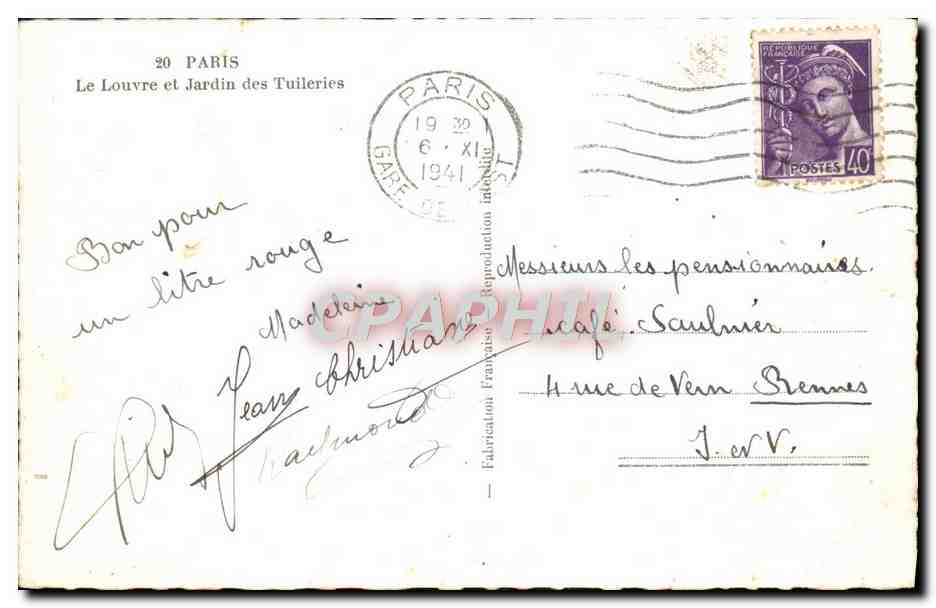 20 PARIS
Le Louvre et Jardin des Tuileries
PARIS
19 30
6 · XI
1941
GARE
REPUBLIQUE
FRANÇAISE
POSTES
40
Bon pour
un litre rouge
Madeleine
Jean Christian
Raymond
Messieurs les pensionnaires
café Saulnier
4 rue de Vern Rennes
I et V.
Fabrication Française - Reproduction interdite
CPAPHIL